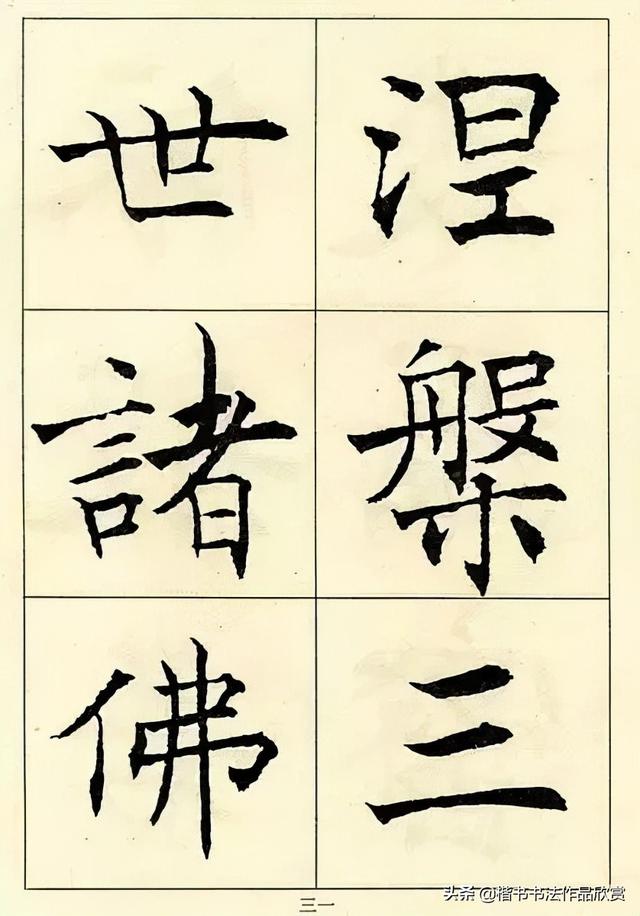 涅槃三
世諸佛
三一
头条 @楷书书法作品欣赏